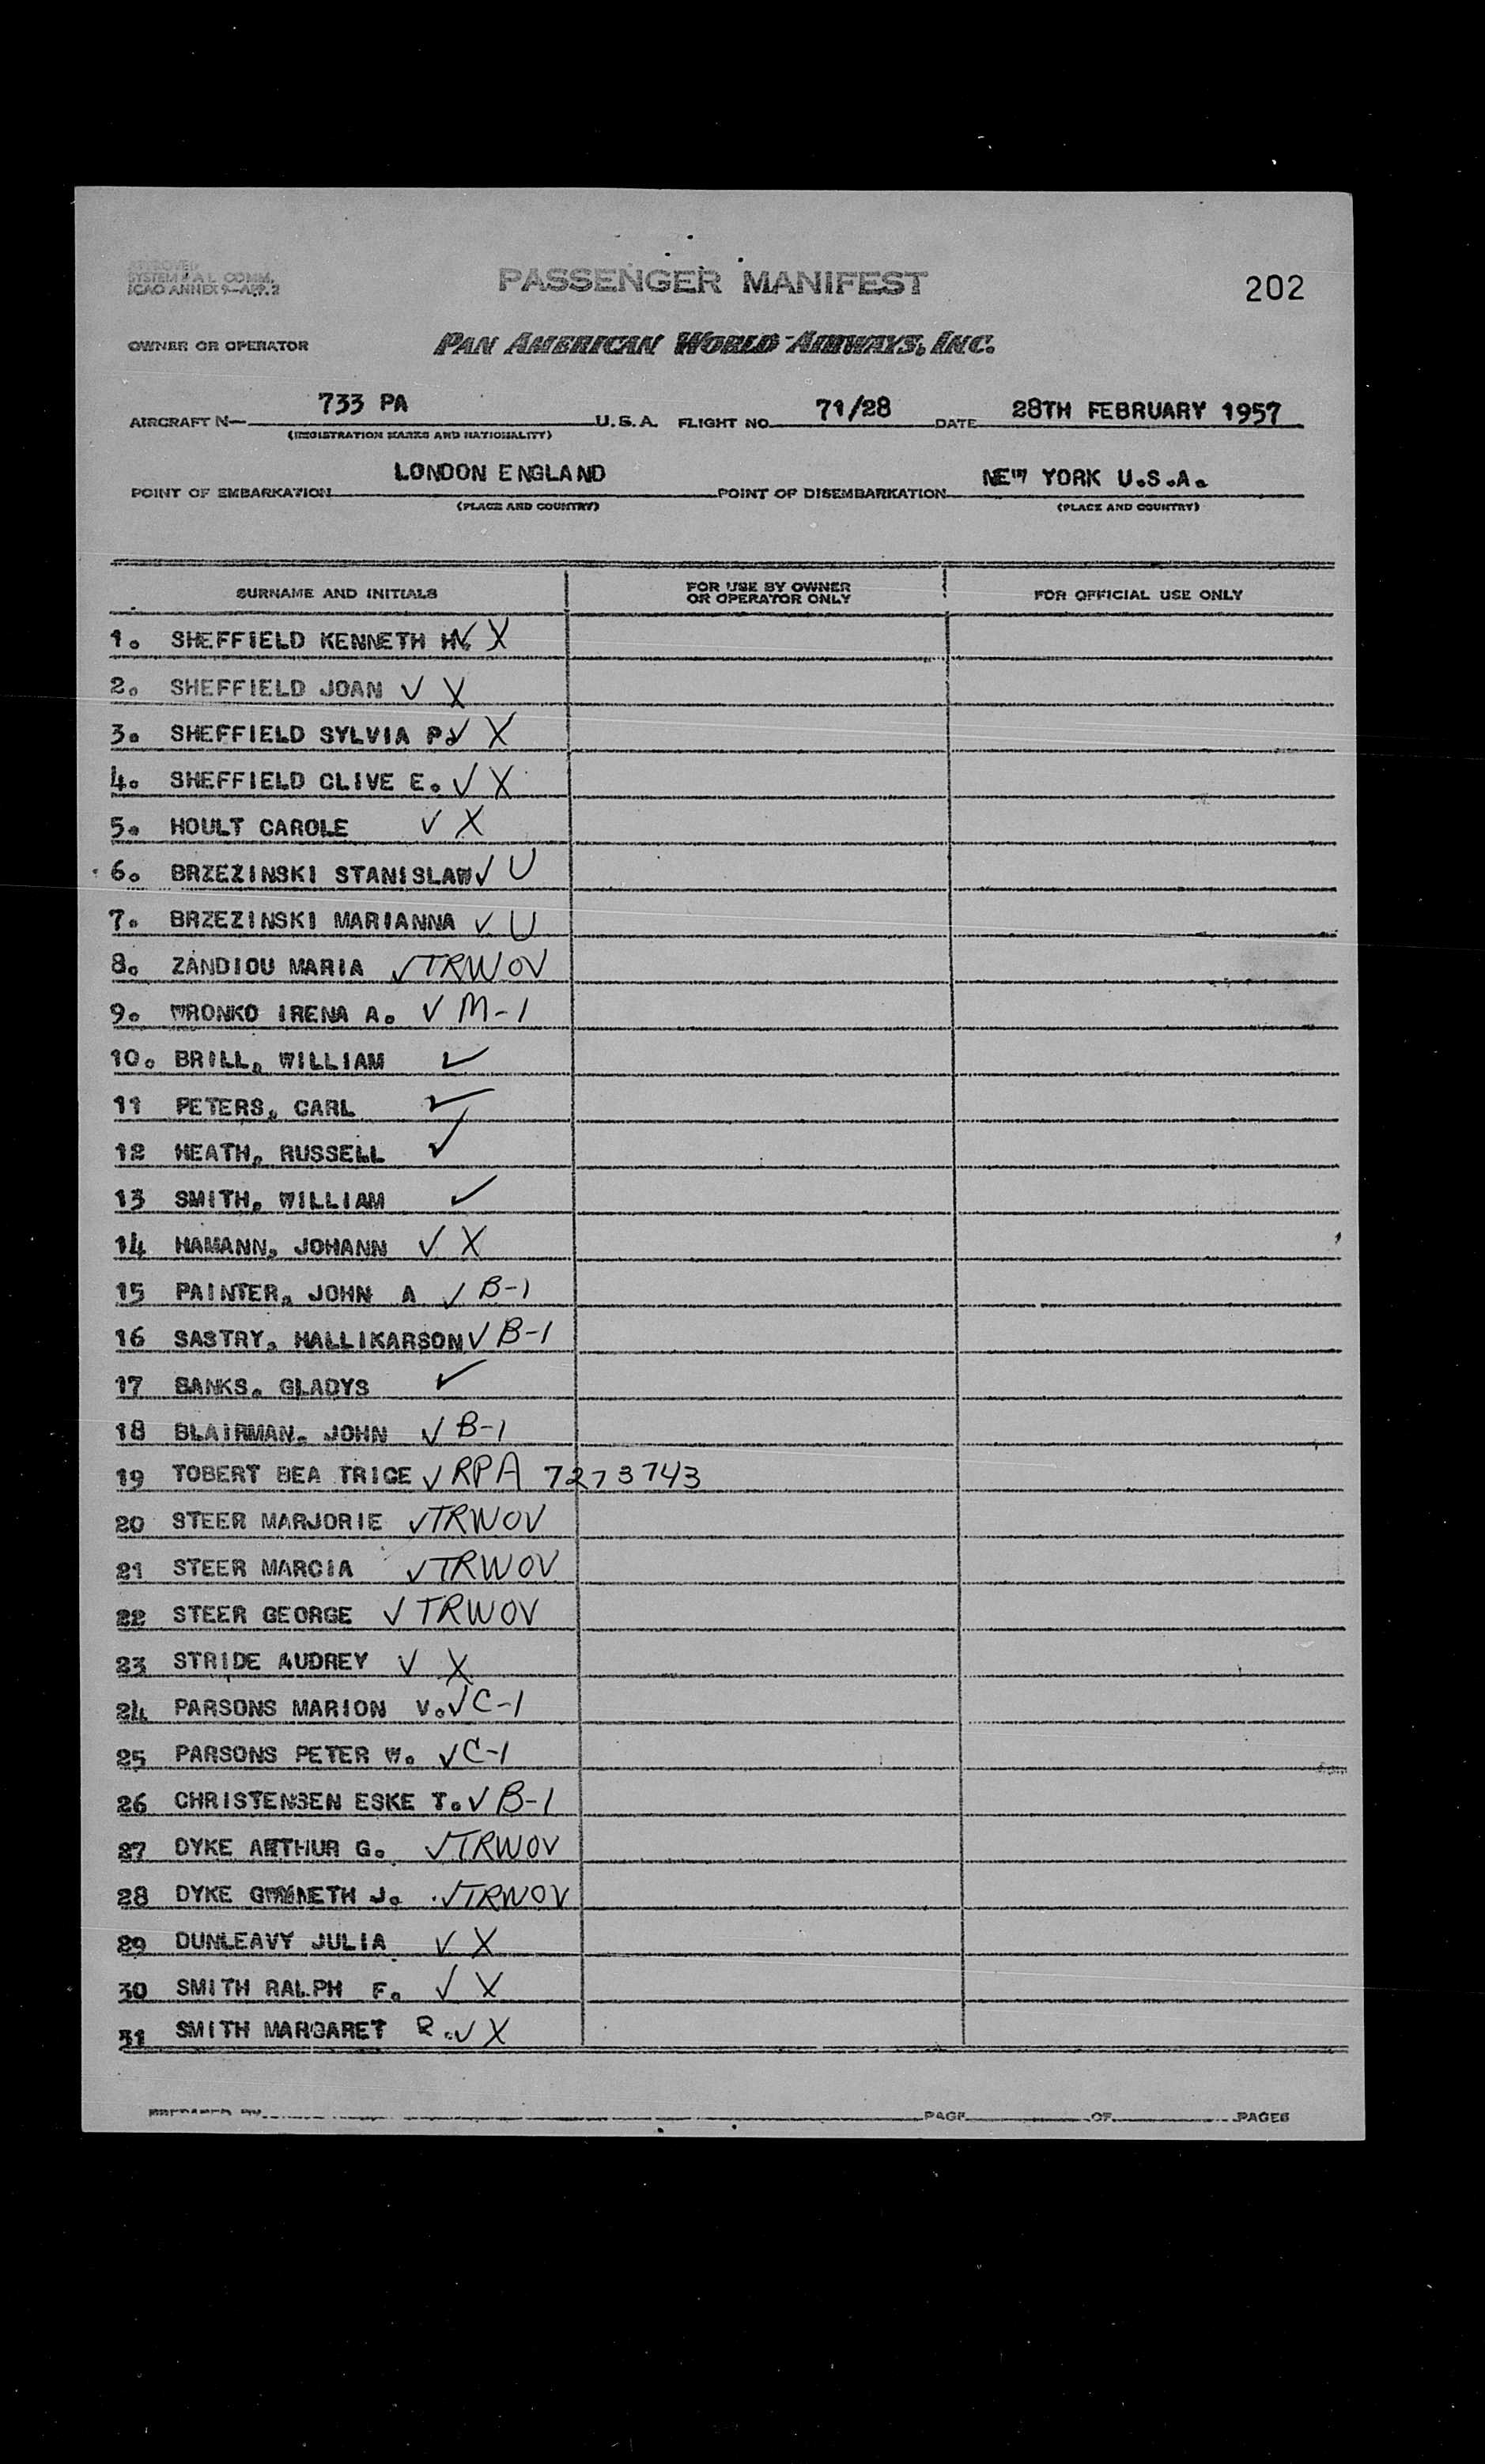 APPROVED
SYSTEM P.A.I. COMM.
ICAO ANNEX 9—APP. 2
PASSENGER MANIFEST
202
OWNER OR OPERATOR PAN AMERICAN WORLD AIRWAYS, INC.
AIRCRAFT N— 733 PA U.S.A. FLIGHT NO. 71/28 DATE 28TH FEBRUARY 1957
(REGISTRATION MARKS AND NATIONALITY)
POINT OF EMBARKATION LONDON ENGLAND POINT OF DISEMBARKATION NEW YORK U.S.A.
(PLACE AND COUNTRY) (PLACE AND COUNTRY)
SURNAME AND INITIALS FOR USE BY OWNER OR OPERATOR ONLY FOR OFFICIAL USE ONLY
1. SHEFFIELD KENNETH H. ✓ X
2. SHEFFIELD JOAN ✓ X
3. SHEFFIELD SYLVIA P. ✓ X
4. SHEFFIELD CLIVE E. ✓ X
5. HOULT CAROLE ✓ X
6. BRZEZINSKI STANISLAW ✓ U
7. BRZEZINSKI MARIANNA ✓ U
8. ZANDIOU MARIA ✓ TRWOV
9. WRONKO IRENA A. ✓ M-1
10. BRILL, WILLIAM ✓
11 PETERS, CARL ✓
12 HEATH, RUSSELL ✓
13 SMITH, WILLIAM ✓
14 HAMANN, JOHANN ✓ X
15 PAINTER, JOHN A ✓ B-1
16 SASTRY, HALLIKARSON ✓ B-1
17 BANKS, GLADYS ✓
18 BLAIRMAN, JOHN ✓ B-1
19 TOBERT BEA TRICE ✓ RPA 7273743
20 STEER MARJORIE ✓ TRWOV
21 STEER MARCIA ✓ TRWOV
22 STEER GEORGE ✓ TRWOV
23 STRIDE AUDREY ✓ X
24 PARSONS MARION V. ✓ C-1
25 PARSONS PETER W. ✓ C-1
26 CHRISTENSEN ESKE T. ✓ B-1
27 DYKE ARTHUR G. ✓ TRWOV
28 DYKE GWYNETH J. ✓ TRWOV
29 DUNLEAVY JULIA ✓ X
30 SMITH RALPH F. ✓ X
31 SMITH MARGARET R. ✓ X
PAGE OF PAGES